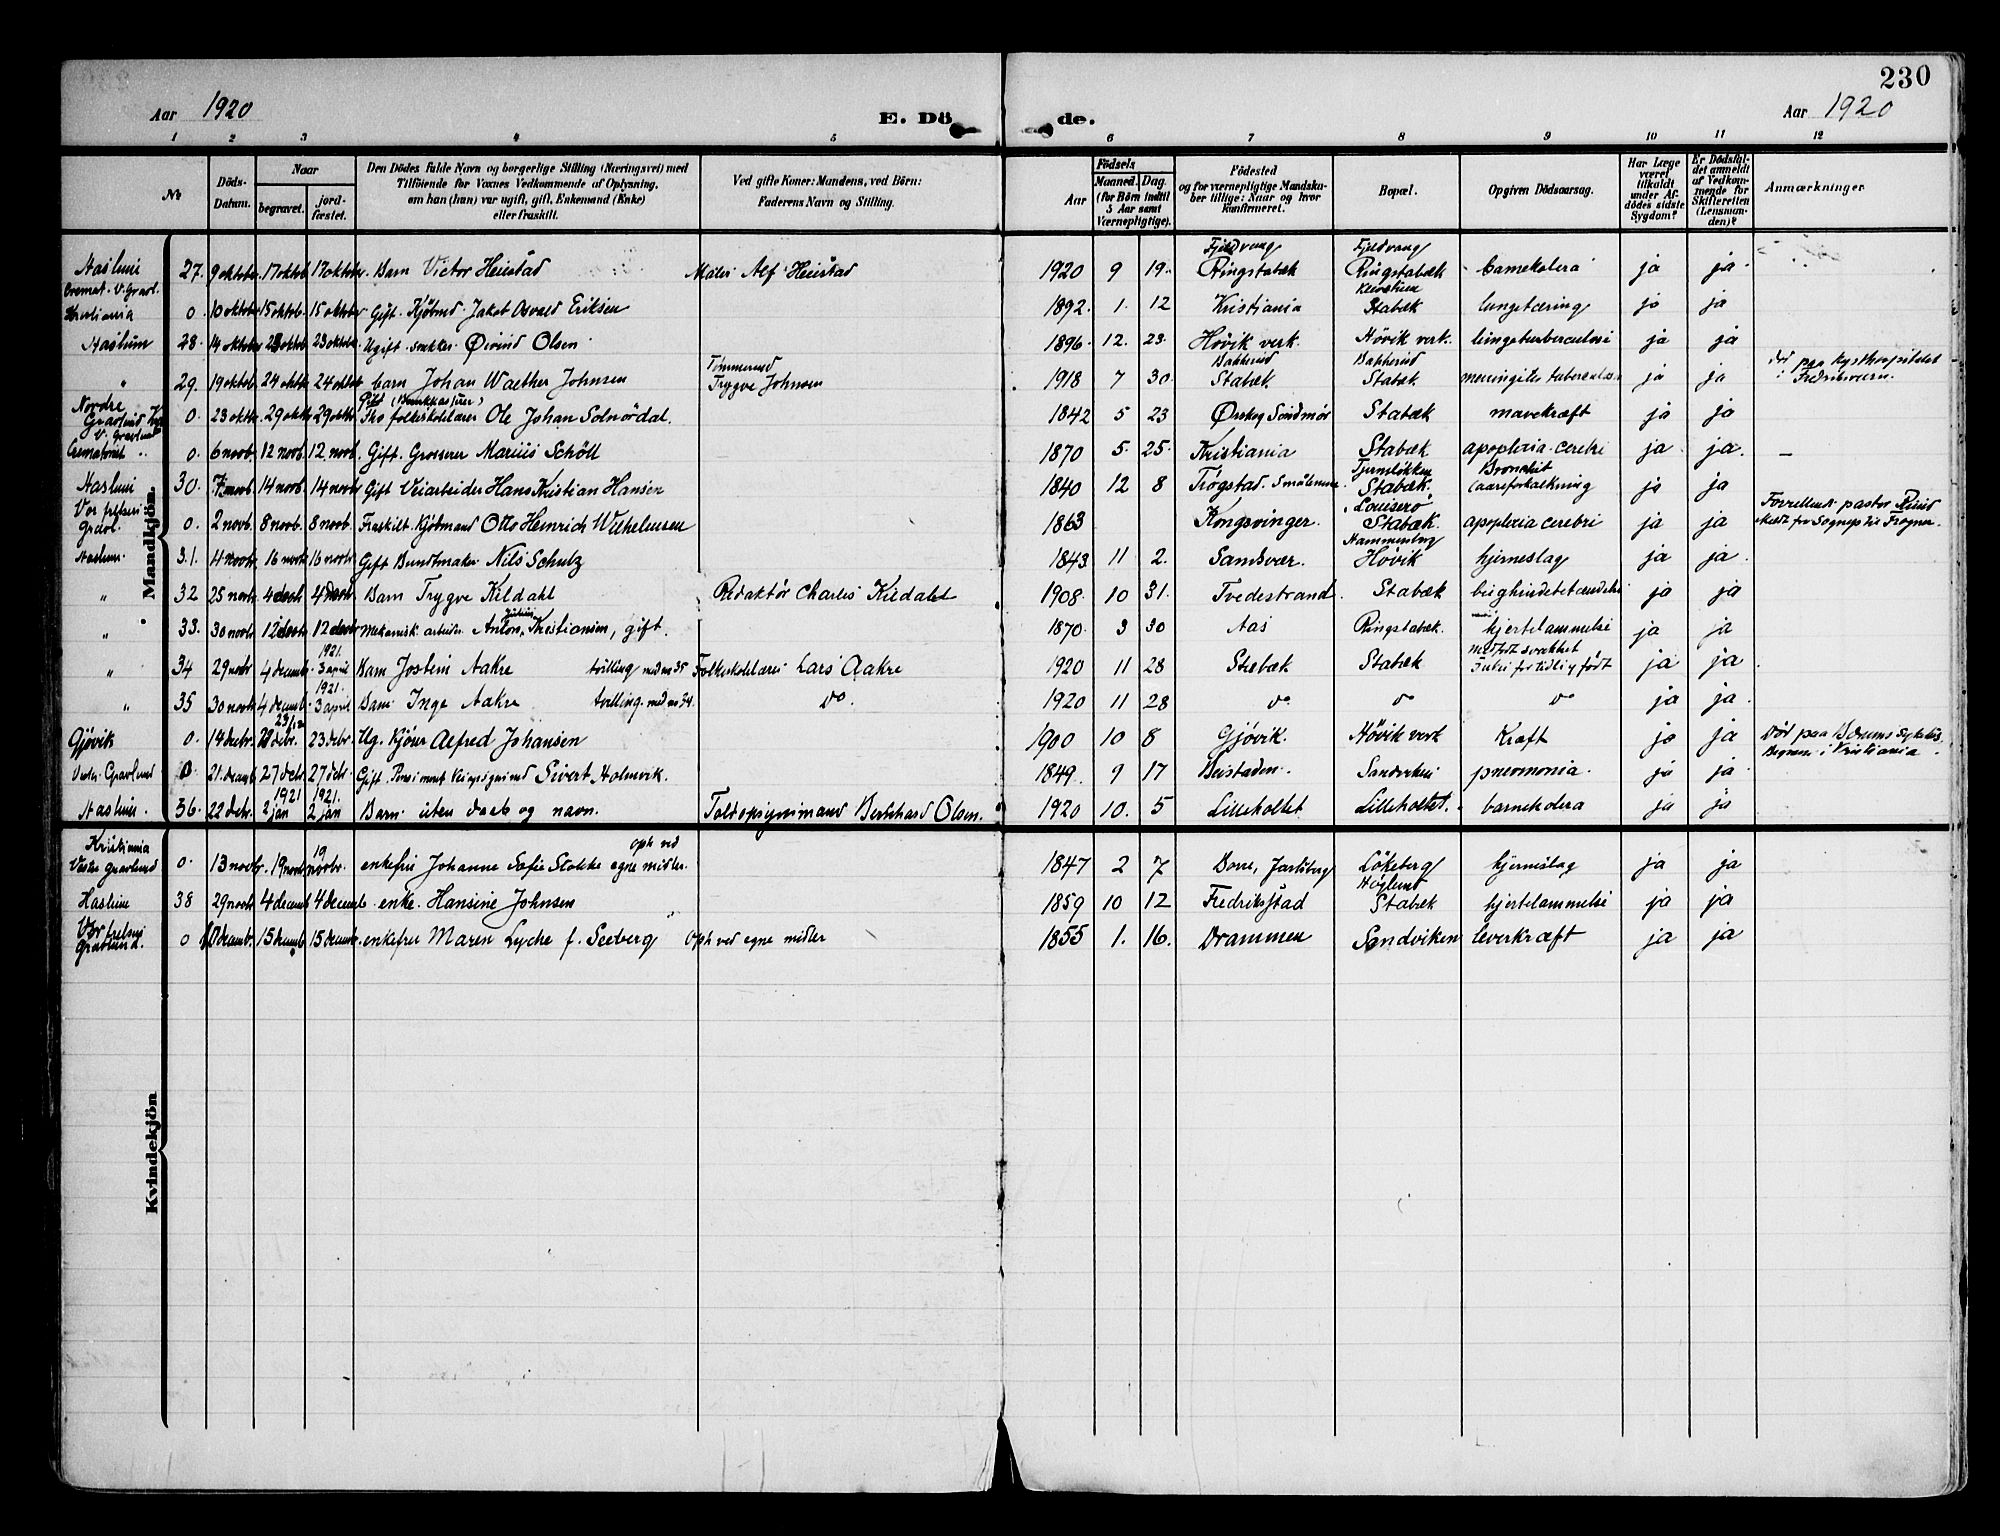 230
Aar 1920
E. Dö de.
Aar 1920
1 2 3 4 5 6 7 8 9 10 11 12
No
Döds-Datum.
Naar
begravet.
jord-fæstet.
Den Dödes fulde Navn og borgerlige Stilling (Næringsvei) med
Tilföiende for Voxnes Vedkommende af Oplysning,
om han (hun) var ugift, gift, Enkemand (Enke)
eller fraskilt.
Ved gifte Koner: Mandens, ved Börn:
Faderens Navn og Stilling.
Födsels
Aar
Maaned. Dag.
(for Börn indtil
5 Aar samt
Værnepligtige).
Födested
og for værnepligtige Mandska-
ber tillige: Naar og hvor
konfirmeret.
Bopæl.
Opgiven Dödsaarsag.
Har Læge
været
tilkaldt
under Af-
dödes sidste
Sygdom?
Er Dödsfal-
det anmeldt
af Vedkom-
mende for
Skifteretten
(Lensman-
den)?
Anmærkninger
Mandkjön.
Haslum 27. 9 oktobr. 17 oktob. 17 oktobr. Barn Victor Heiestad Maler Alf Heiestad 1920 9 19. Fjeldvang Ringstabæk Fjeldvang Ringstabæk barnekolera ja ja
Cremat. V. Gravl. Kristiania 0. 10 oktobr. 15 oktob. 15 oktobr Gift. Kjöbmd. Jakob Osvald Eriksen 1892. 1. 12 Kristiania Stabæk lungetæring ja ja
Haslum 28. 14 oktobr. 23 oktobr. 23 oktobr. Ugift snekker Øivind Olsen 1896. 12. 23. Hövik verk. Hövik verk. lungetuberculosi ja ja
" 29. 19 oktob. 24 oktbr. 24 oktbr. barn Johan Walther Johnsen Tömmermd Trygve Johnsen 1918 7 30. Bakkerud Stabæk Bakkerud Stabæk meningitis tuberculosa ja ja Död paa Kysthospitalet i Fredriksværn.
Nordre Gravlund 0. 23 oktbr. 29 oktbr. 29 oktbr. Gift (Bankkasserer) fhv folkeskolelærer Ole Johan Solnördal. 1842 5 23 Ørskog Söndmör Stabæk mavekræft ja ja
V. Gravlund Crematoriet 0. 6 novb. 12 novb. 12 novb. Gift. Grosserer Marius Schöll 1870 5. 25. Kristiania Stabæk apoplexia cerebri ja. ja. —
Haslum 30. 7 novb. 14 novbr. 14 novbr. Gift Veiarbeider Hans Kristian Hansen 1840 12 8 Trögstad. Smålenene Tjernsløkken Stabæk. Bronchit aareforkalkning ja ja
Vor frelsers Gravl. 0. 2 novb. 8 novb. 8 novb. Fraskilt. Kjöbmand Otto Heinrich Wilhelmsen 1863 Kongsvinger. Louisero Stabæk. apoplexia cerebri ja ja Forrettende pastor Ruud
Haslum. 31. 4 novbr. 16 novbr. 16 novbr. Gift Bundtmaker Nils Schulz 1843 11 2. Sandsvær. Hövik hjerneslag ja ja.
" 32 25 novbr. 4 decbr. 4 decbr. Barn Trygve Kildahl Redaktör Charles Kildahl 1908. 10 31. Tvedestrand. Stabæk bughindebetændelse ja ja
" 33. 30 novbr. 12 decbr. 12 decbr. Mekanisk arbeider Anton Julius Kristiansen, gift. 1870. 3 30 Aas Ringstabæk. hjertelammelse ja ja
" 34 29 novbr 4 decemb. 1921. 3 april Barn Jostein Aakre tvilling med no 35 Folkeskolelærer Lars Aakre 1920 11 28 Stabæk Stabæk medfödt svakhet for tidlig födt ja ja
" 35 30 novbr. 4 decemb. 1921. 3 april Barn Inge Aakre tvilling. med no 34. Do. 1920 11 28 Do Do Do ja ja.
Gjövik 0. 14 decbr. 23/12 23 debr. Ug. Kjörer Alfred Johansen 1900 10 8 Gjövik. Hövik verk Kræft ja ja Död paa Bærums Sykehus. i Kristiania
Vestre Gravlund 0. 21. decemb 27 decbr 27 debr. Gift. Sivert Holmvik. 1849. 9 17 Beistaden. Sandviken pneumonia. ja ja.
Haslum. 36. 22 decbr. 1921 2 jan 1921. 2 jan Barn uten daab og navn. Toldopsynsmand Bernhard Olsen. 1920 10. 5 Lilleholtet Lilleholtet. barnekolera ja ja
Kvindekjön
Kristiania Vestre Gravlund 0. 13 novbr. 19 novbr. 19 novbr. enkefru Johanne Sofie Stokke oph ved egne midler. 1847 2 7 Borre, Jarlsberg Lökeberg hjerneslag ja ja
Haslum 38 29 novbr 4 decemb 4 decemb. enke. Hansine Johnsen 1859 10 12 Fredrikstad Höglund Stabæk hjertelammelse ja ja
Vor frelsers gravlund. 0 10 decemb. 15 decemb 15 decemb. enkefru Maren Lyche f. Seeberg Oph ved egne midler 1855 1. 16. Drammen Sandviken leverkræft ja ja